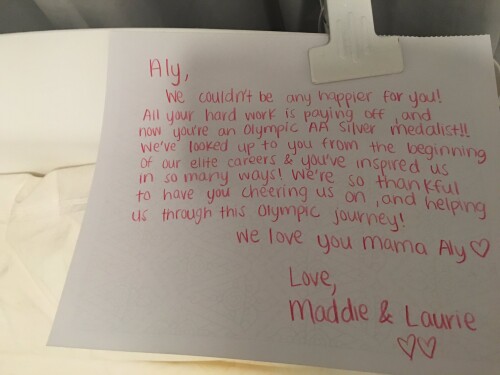 Aly,
We couldn't be any happier for you!
All your hard work is paying off, and
now you're an Olympic AA Silver medalist!!
We've looked up to you from the beginning
of our elite careers & you've inspired us
in so many ways! We're so thankful
to have you cheering us on, and helping
us through this Olympic journey!
We love you mama Aly ♡
Love,
Maddie & Laurie
♡♡